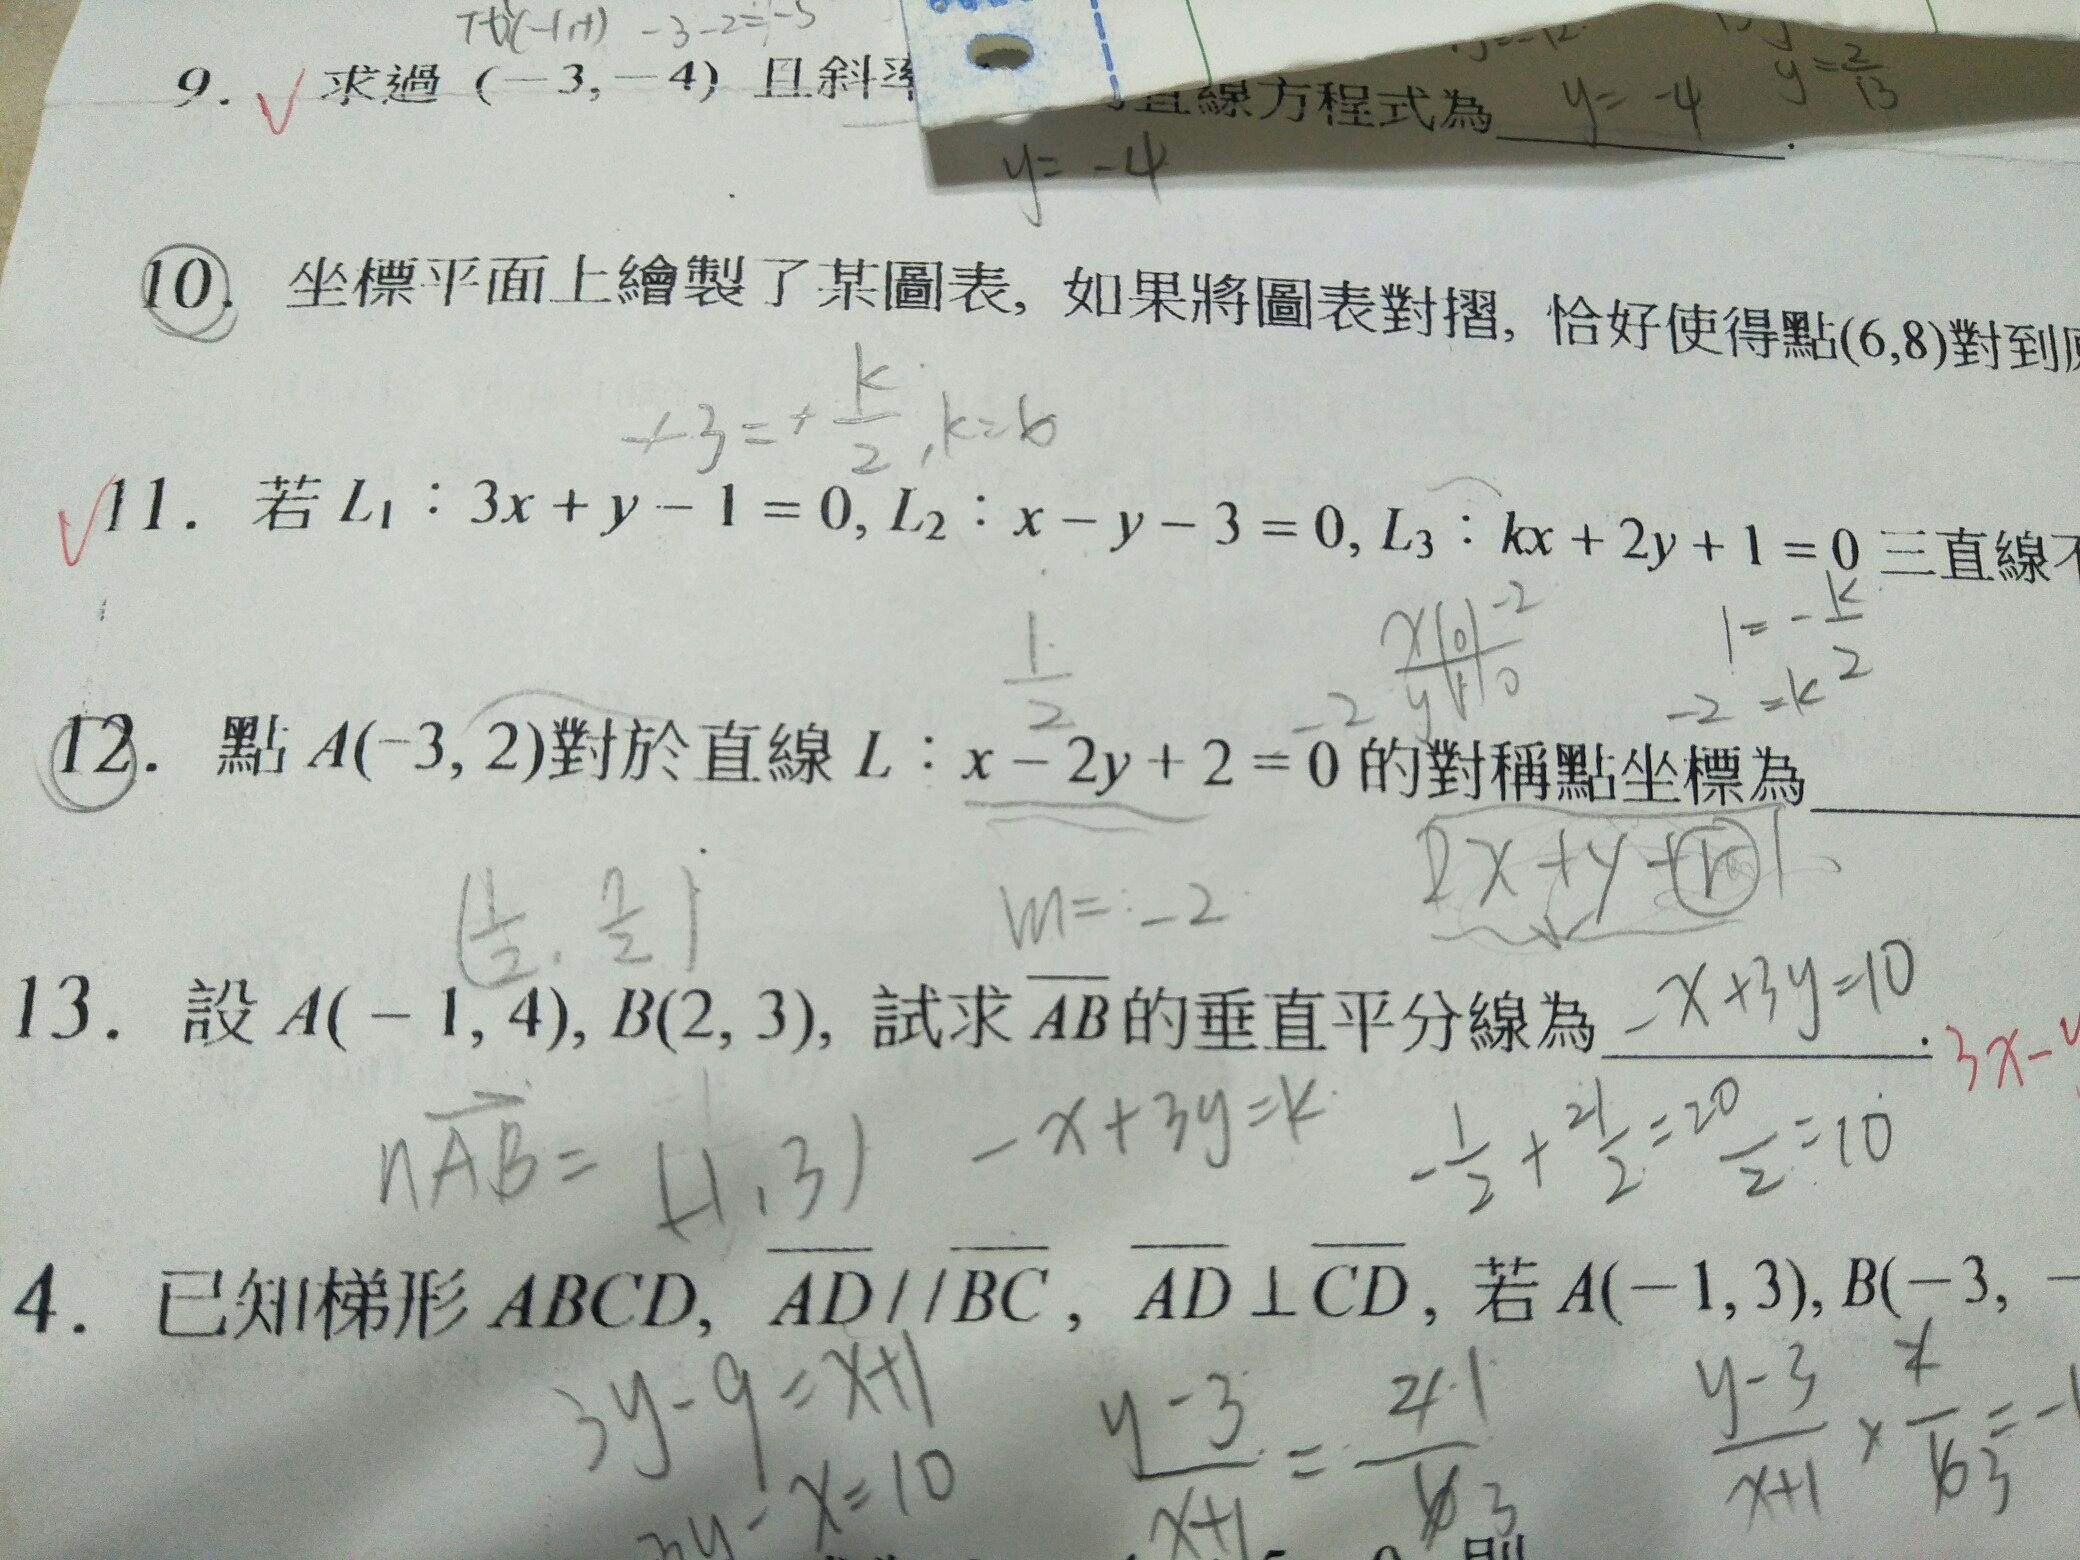 -3-2=-5
y=2/13
9. 求過 (-3, -4) 且斜率 直線方程式為 y=-4
y=-4
10. 坐標平面上繪製了某圖表, 如果將圖表對摺, 恰好使得點(6,8)對到
+3=+k/2, k=6
11. 若 L1:3x+y-1=0, L2:x-y-3=0, L3:kx+2y+1=0 三直線不
1=-k/2
-2=k
1/2
x 0 -2
y 1 0
12. 點 A(-3, 2)對於直線 L:x-2y+2=0 的對稱點坐標為
2x+y+k
(1/2, 7/2) m=-2
13. 設 A(-1, 4), B(2, 3), 試求 AB 的垂直平分線為 -x+3y=10. 3x-y
nAB=(-1,3) -x+3y=k -1/2+21/2=20/2=10
4. 已知梯形 ABCD, AD//BC, AD⊥CD, 若 A(-1, 3), B(-3, -
3y-9=x+1 y-3/x+1 = y-3/x+1 × =-1
3y-x=10